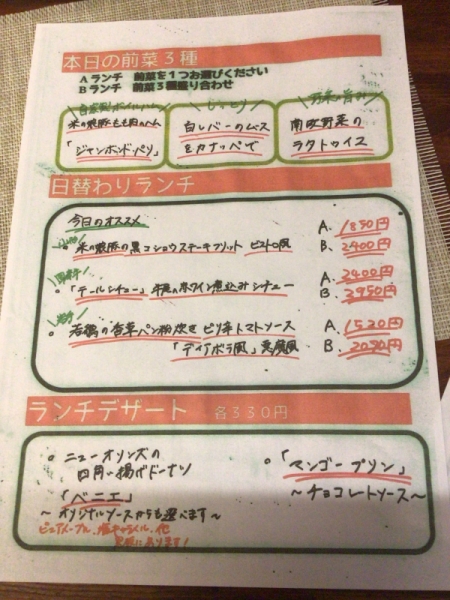 本日の前菜３種
Ａランチ　前菜を１つお選びください
Ｂランチ　前菜３種盛り合わせ
米の娘豚もも肉のハム
「ジャンボンド・パリ」
しっとり
白レバーのムース
をカナッペで
南欧野菜の
ラタトゥイユ
日替わりランチ
今日のオススメ
米の娘豚の黒コショウステーキフリット ビストロ風
A. 1850円
B. 2400円
「テールシチュー」牛尾の赤ワイン煮込みシチュー
A. 2400円
B. 2950円
若鶏の香草パン粉焼き ピリ辛トマトソース
「ディアボラ風」悪魔風
A. 1520円
B. 2050円
ランチデザート　各３３０円
ニューオリンズの
四角い揚げドーナツ
「ベニエ」
～オリジナルソースからも選べます～
ピュアメープル、塩キャラメル、他
「マンゴープリン」
～チョコレートソース～